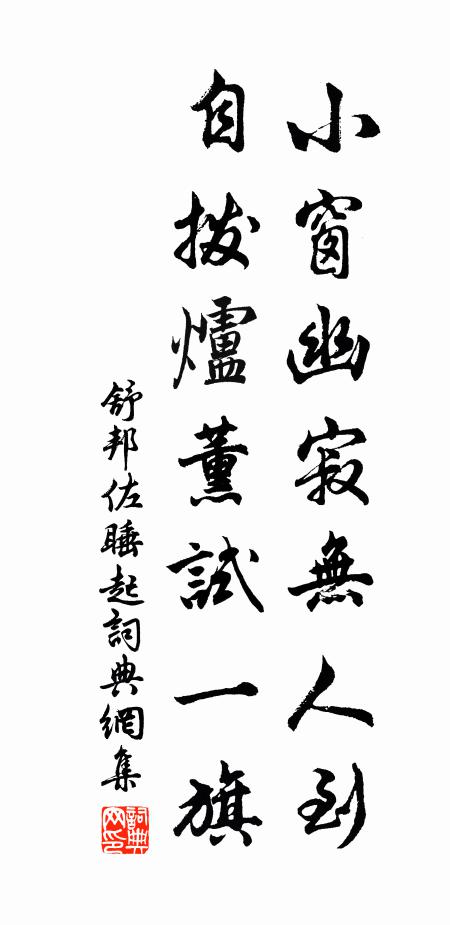 小窗幽寂無人到
自撥爐薰試一旗
舒邦佐睡起詞典網集
詞典网印